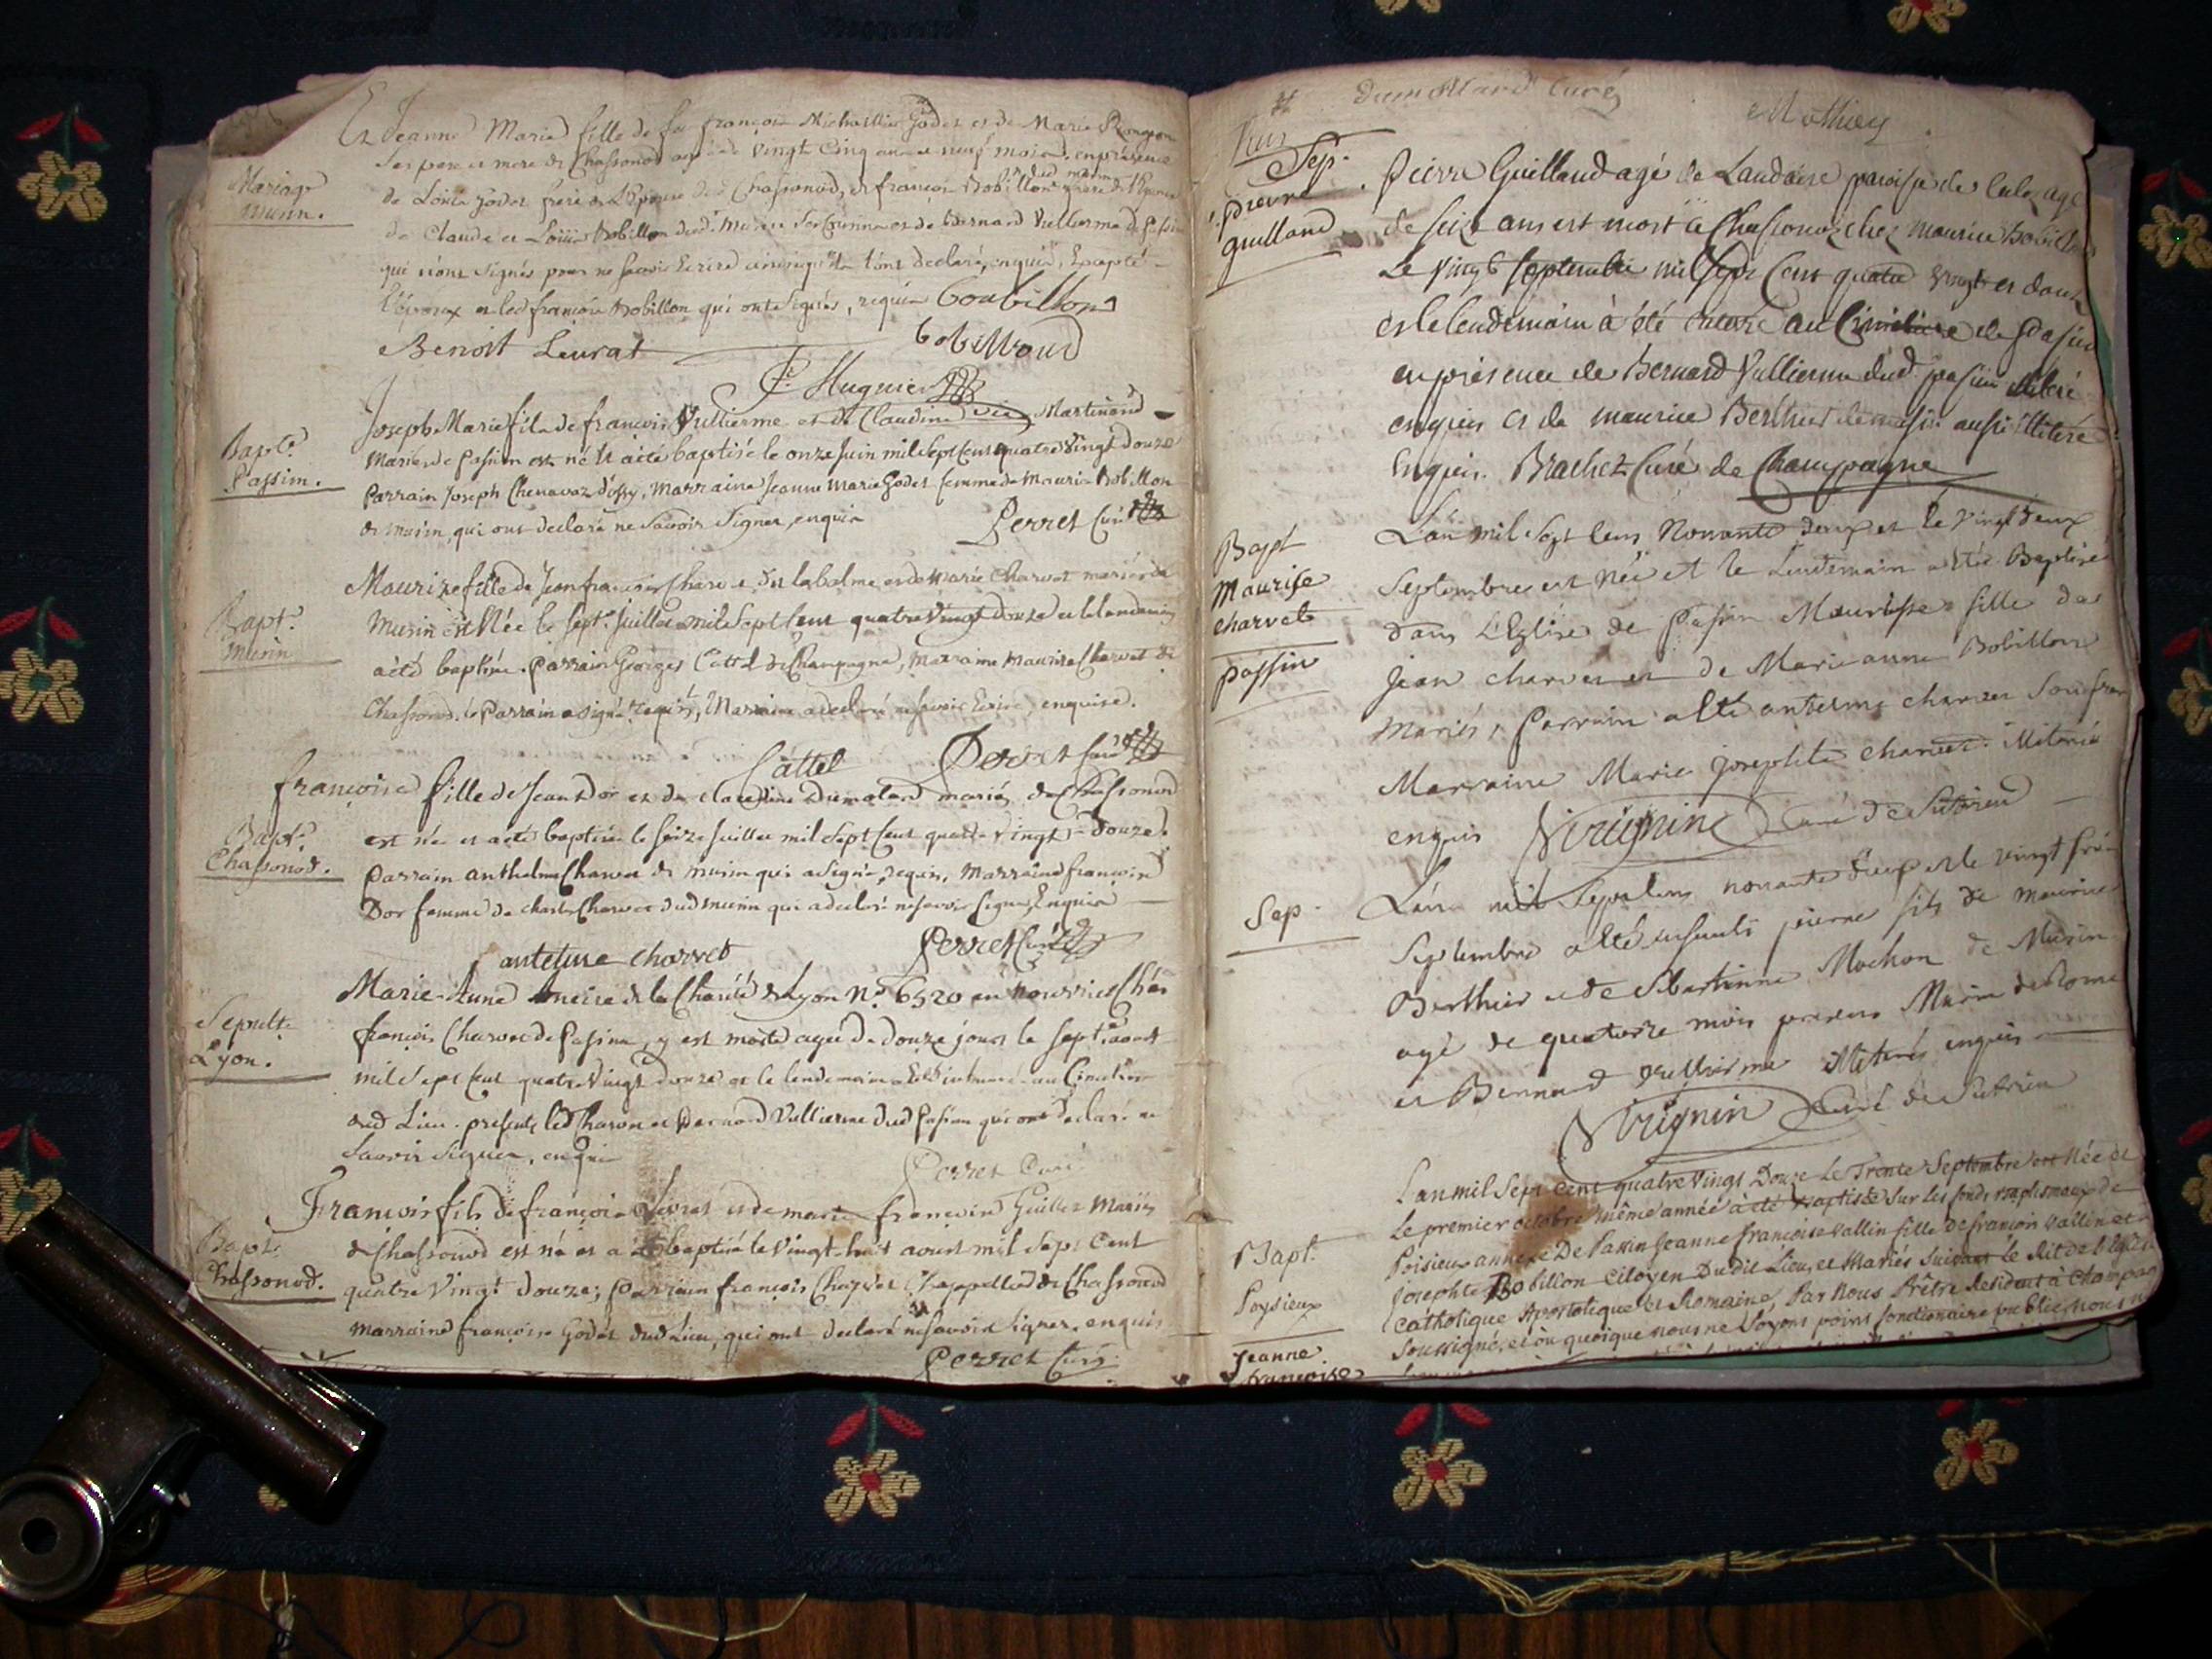 Et Jeanne Marie fille de feu françois Michaillie Godet et de Marie
ses pere et mere de Chassonod agée de vingt cinq ans et neuf mois. en présence
Mariage
de Loüis Godet frere de L'Epouse dud Chassonod, de françois Bobillon
de Claude et Loüis Bobillon dud. Musin et de Bernard Vullierme de
qui n'ont signés pour ne savoir Ecrire ainsi qu'ils l'ont declaré, enquis, Excepté
l'époux et led françois Bobillon qui ont signés, requis Bonbillon
Benoit Leurat
bobilloud
P. Huguier
Bapt.e
Passin.
Joseph Marie fils de françois Vullierme et de Claudine Martinand
Mariés de Passin est né et a été baptisé le onze Juin mil Sept Cent quatre Vingt Douze
Parrain Joseph Chenavaz d'ossy, Marraine Jeanne Marie Godet femme de Mauris Bobillon
de Musin, qui ont declaré ne Savoir Signer, enquis
Perret Curé
Bapt.e
Musin
Maurize fille de Jean françois de labalme et de Marie Charvet mariés de
Musin est Née le Sept.e Juillet mil Sept Cent quatre Vingt Douze et le lendemain
a été baptisée. Parrain Georges Cattel de Champagne, Marraine Maurize Charvet de
Chassonod. le Parrain a signé requis, la Marraine a declaré ne savoir Ecrire, enquise.
Cattel
Perret Curé
Bapt.e
Chassonod.
françoise fille de Jean Dor et de claudine Dumolard mariés de Chassonod
est née et a été baptisée le Seize Juillet mil Sept Cent quatre Vingt-douze.
Parrain anthelme Charvet de musin qui a Signé, requis, Marraine françoise
Dor femme de charles Charvet dud musin qui a declaré ne savoir signer, Enquise
antelme charvet
Perret Curé
Sepult.e
Lyon.
Marie-Anne de la Charité de Lyon N.° 6520 en nourrice Chés
françois Charvet de Passin, y est morte agée de Douze jours le Sept.e aoust
mil Sept Cent quatre Vingt Douze et le lendemain a été inhumée au Cimetiere
dud Lieu. presents led Charvet et Bernard Vullierme Dud Passin qui ont declaré ne
Savoir Signer, enquis
Perret Curé
Bapt.
Chassonod.
François fils de françois Livret et de marie françoise Guillet Mariés
de Chassonod est né et a été baptisé le Vingt-huit aoust mil Sept Cent
quatre Vingt douze; Parrain françois Charvet de Chassonod
marraine françoise Godet dud Lieu, qui ont declaré ne savoir Signer. enquis
Perret Curé
Dumollard Curé
Mathieu
Sep.
Pierre
guilland
Pierre Guilland agé de Laudaise paroisse de
de Seize ans est mort à Chassonoz chez Maurice Bobillon
Le vingt Septembre mil Sept Cent quatre vingt et douze
et le lendemain à été enterré au Cimetiere de Passin
en présence de Bernard Vullierme dud. passin
enquis et de maurice Berthier de musin aussi illiteré
Enquis. Brachet Curé de Champagne
Bapt
Maurise
charvet
passin
L'an mil Sept Cens Nonante deux et le vingt deux
Septembre est Née et le Lendemain a été Baptisé
dans L'Eglise de Passin Maurisse fille de
Jean charvet et de Marie anne Bobillon
Mariés, Parrain a été antelme charvet son frere
Marraine Marie josephte charvet. illiterés
enquis Virignin Curé de Sutrieu
Sep.
L'an mil Sept Cens nonante deux et le vingt
Septembre a été ensevelis pierre fils de Maurice
Berthier et de Sebastienne Mochon de Musin
agé de quatorze mois presens Marin de Rome
et Bernard Vullierme illiterés enquis
Virignin Curé de Sutrieu
Bapt.
Poysieux
Jeanne
françoise
L'an mil Sept cent quatre Vingt Douze Le Trente Septembre est Née et
Le premier octobre même année à été Baptisée Sur les fonds Baptismaux de
Poisieux annexe De Passin Jeanne françoise Vallin fille de françois Vallin et
Josephte Bobillon Citoyen Dudit Lieu, et Mariés Suivant le Rit de l'Eglise
Catholique Apostolique et Romaine, Par Nous Prêtre Resident à Champagne
Soussigné, et où quoique nous ne Soyons point fonctionaire public, nous